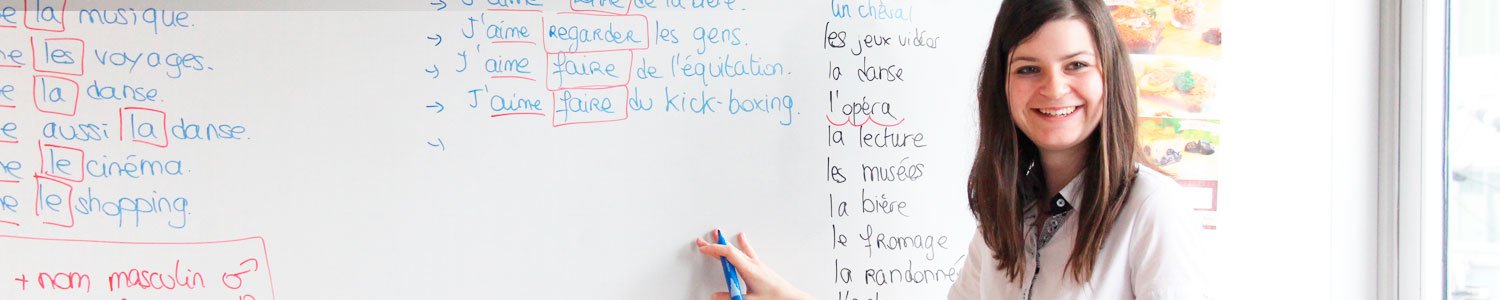 la musique.
les voyages.
la danse.
aussi la danse.
le cinéma.
le shopping.
+ nom masculin ♂
→ J'aime de la bière.
→ J'aime REGARDER les gens.
→ J'aime faire de l'équitation.
→ J'aime faire du kick-boxing.
→
un chèval
les jeux vidéos
la danse
l'opéra
la lecture
les musées
la bière
le fromage
la randonné